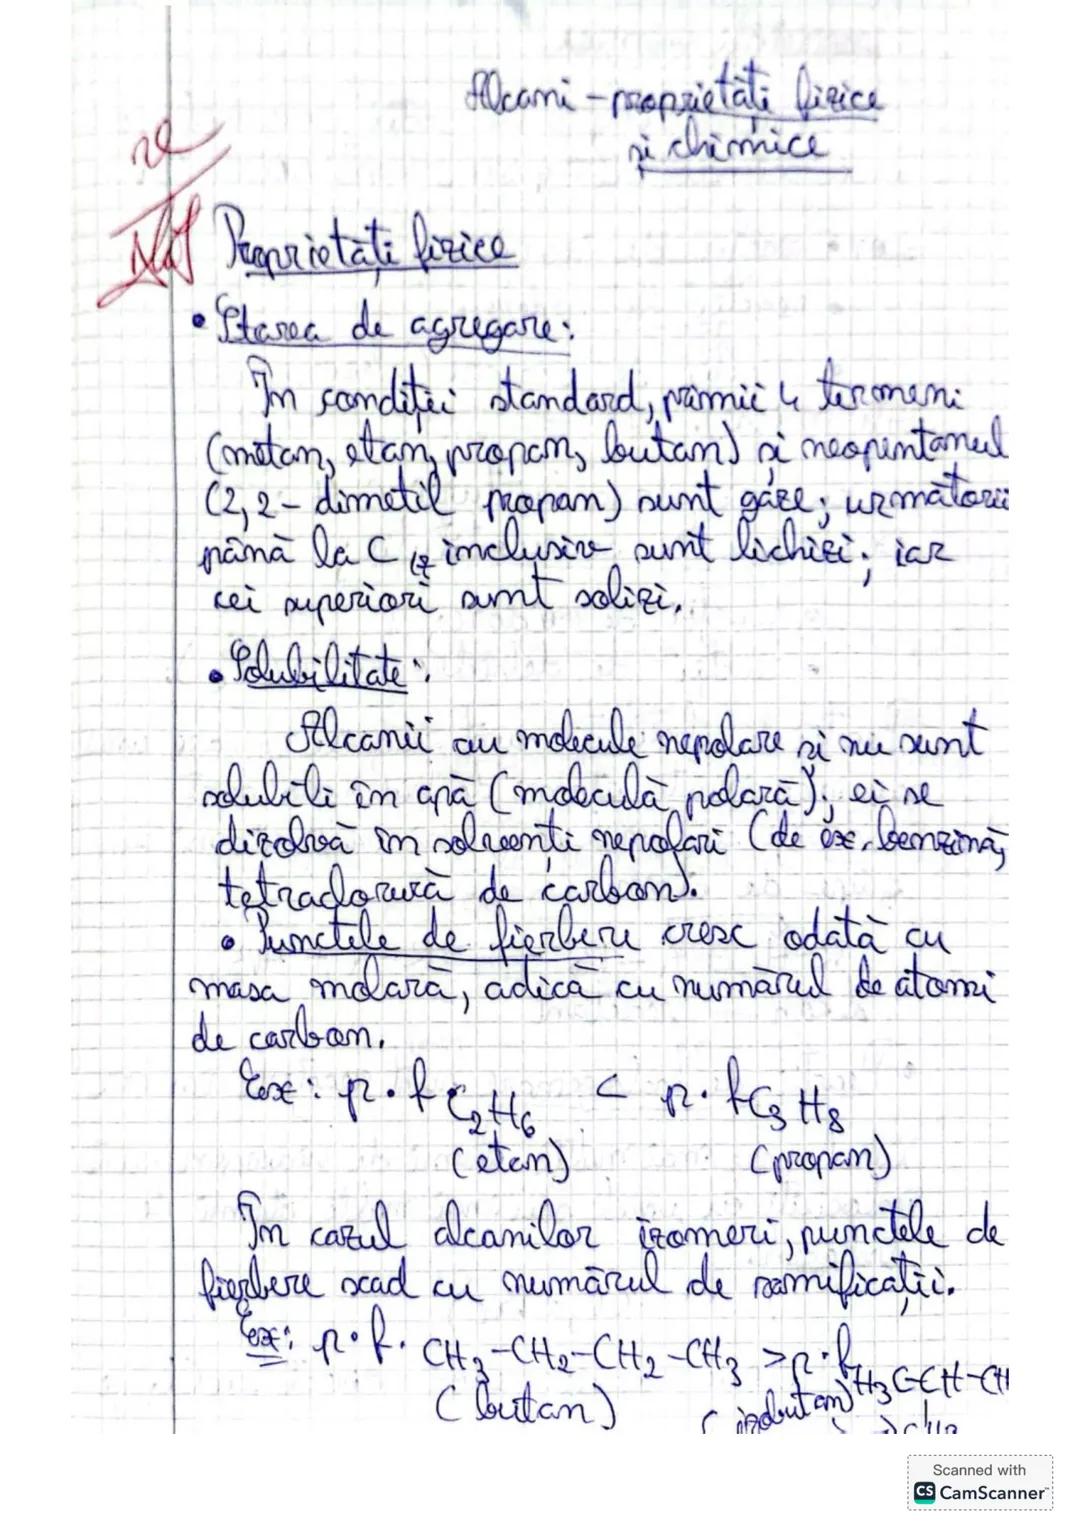 Alcani - proprietăți fizice
și chimice
Proprietăți fizice
• Starea de agregare:
În condiții standard, primii 4 termeni
(metan, etan, propan, butan) și neopentanul
(2,2 - dimetil propan) sunt gaze; următorii
până la C17 inclusiv sunt lichizi; iar
cei superiori sunt solizi.
• Solubilitate:
Alcanii au molecule nepolare și nu sunt
solubili în apă (moleculă polară); ei se
dizolvă în solvenți nepolari (de ex. benzină,
tetraclorură de carbon).
• Punctele de fierbere cresc odată cu
masa molară, adică cu numărul de atomi
de carbon.
Ex: p.f. C2H6 < p.f. C3H8
(etan) (propan)
În cazul alcanilor izomeri, punctele de
fierbere scad cu numărul de ramificații.
Ex: p.f. CH3-CH2-CH2-CH3 > p.f. H3C-CH-CH
(butan) (izobutan)
Scanned with
CS CamScanner